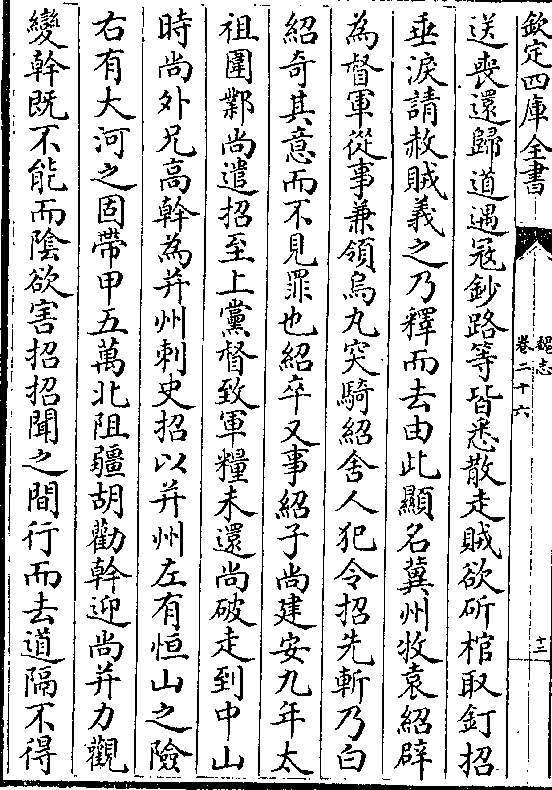 欽定四庫全書
魏志
卷二十六
十三
送喪還歸道遇寇鈔路等皆悉散走賊欲斫棺取釘招
垂淚請赦賊義之乃釋而去由此顯名冀州牧袁紹辟
為督軍從事兼領烏丸突騎紹舍人犯令招先斬乃白
紹奇其意而不見罪也紹卒又事紹子尚建安九年太
祖圍鄴尚遣招至上黨督致軍糧未還尚破走到中山
時尚外兄高幹為并州刺史招以并州左有恒山之險
右有大河之固帶甲五萬北阻疆胡勸幹迎尚并力觀
變幹既不能而陰欲害招招聞之間行而去道隔不得